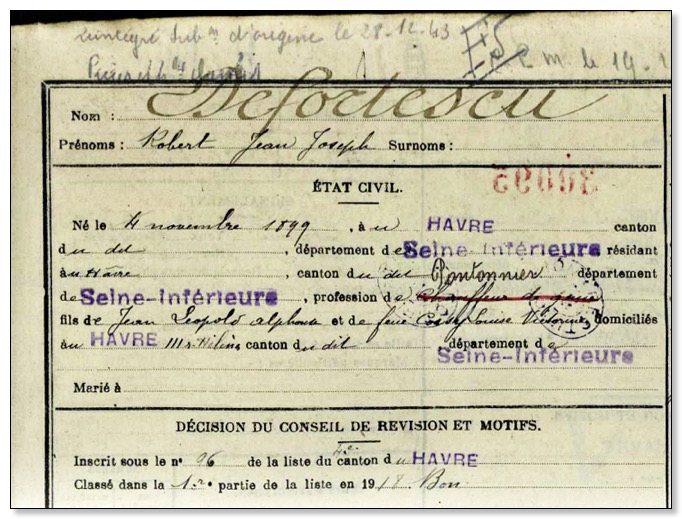 réintégré Subon d'origine le 28-12-43
P.M. le 19-1
Nom : Defortescu
Prénoms : Robert Jean Joseph Surnoms :
ÉTAT CIVIL.
Né le 4 novembre 1899, à u HAVRE canton
du dit, département de Seine-Inférieure résidant
à u Havre, canton du dit Pontonnier département
de Seine-Inférieure, profession de Chauffeur de grue
fils de Jean Léopold Alphonse et de feue Louise Victorine domiciliés
au HAVRE 111 r. Hélène canton du dit, département de
Seine-Inférieure
Marié à
DÉCISION DU CONSEIL DE REVISION ET MOTIFS.
Inscrit sous le n° 96 de la liste du 4e canton du HAVRE
Classé dans la 1re partie de la liste en 1918 Bon